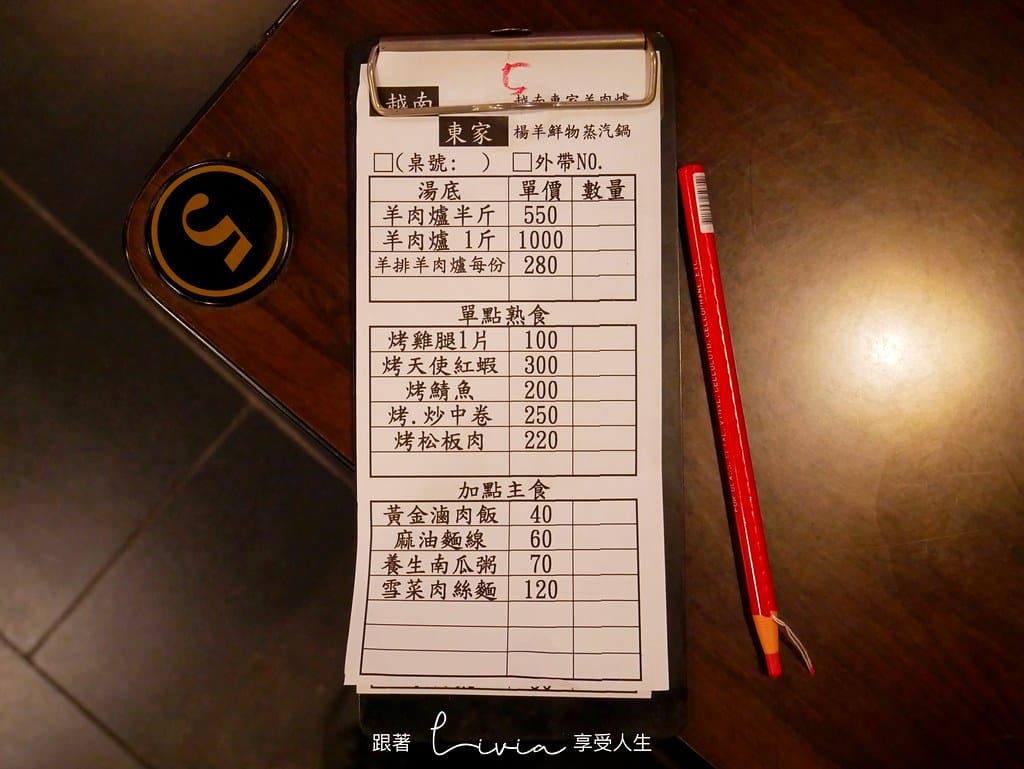 5
越南 越南東家羊肉爐
東家 楊羊鮮物蒸汽鍋
□(桌號: ) □外帶NO.
湯底 單價 數量
羊肉爐半斤 550
羊肉爐 1斤 1000
羊排羊肉爐每份 280
單點熟食
烤雞腿1片 100
烤天使紅蝦 300
烤鯖魚 200
烤.炒中卷 250
烤松板肉 220
加點主食
黃金滷肉飯 40
麻油麵線 60
養生南瓜粥 70
雪菜肉絲麵 120
5
跟著 Livia 享受人生